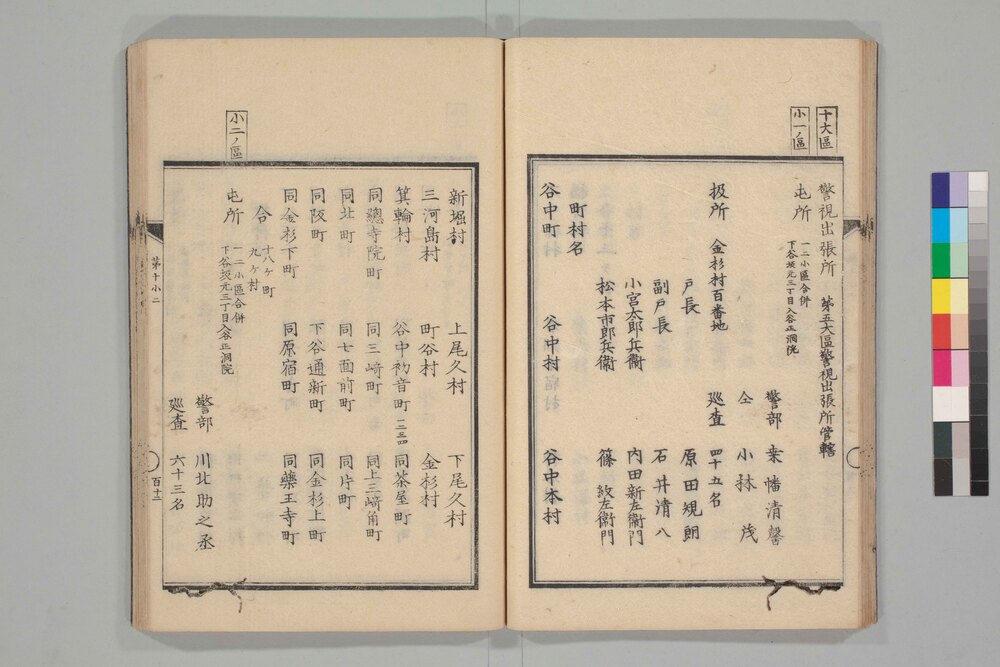 十大區
小一ノ區
警視出張所 第五大區警視出張所管轄
屯所 一二小區合併
下谷坂元三丁目入谷正洞院
警部 桒幡清馨
仝 小林茂
扱所 金杉村百番地 廵査 四十五名
戸長 原田規朗
副戸長 石井清八
小宮太郎兵衞 内田新左衞門
松本市郎兵衞 篠紋左衞門
町村名
谷中町 谷中村 谷中本村
新堀村 上尾久村 下尾久村
三河島村 町谷村 金杉村
箕輪村 谷中初音町一二三四 同茶屋町
同總寺院町 同三﨑町 同上三﨑角町
同北町 同七面前町 同片町
同阪町 下谷通新町 同金杉上町
同金杉下町 同原宿町 同藥王寺町
合 十八ヶ町
九ヶ村
小二ノ區
屯所 一二小區合併
下谷坂元三丁目入谷正洞院
警部 川北助之丞
廵査 六十三名
第十小二
百十二